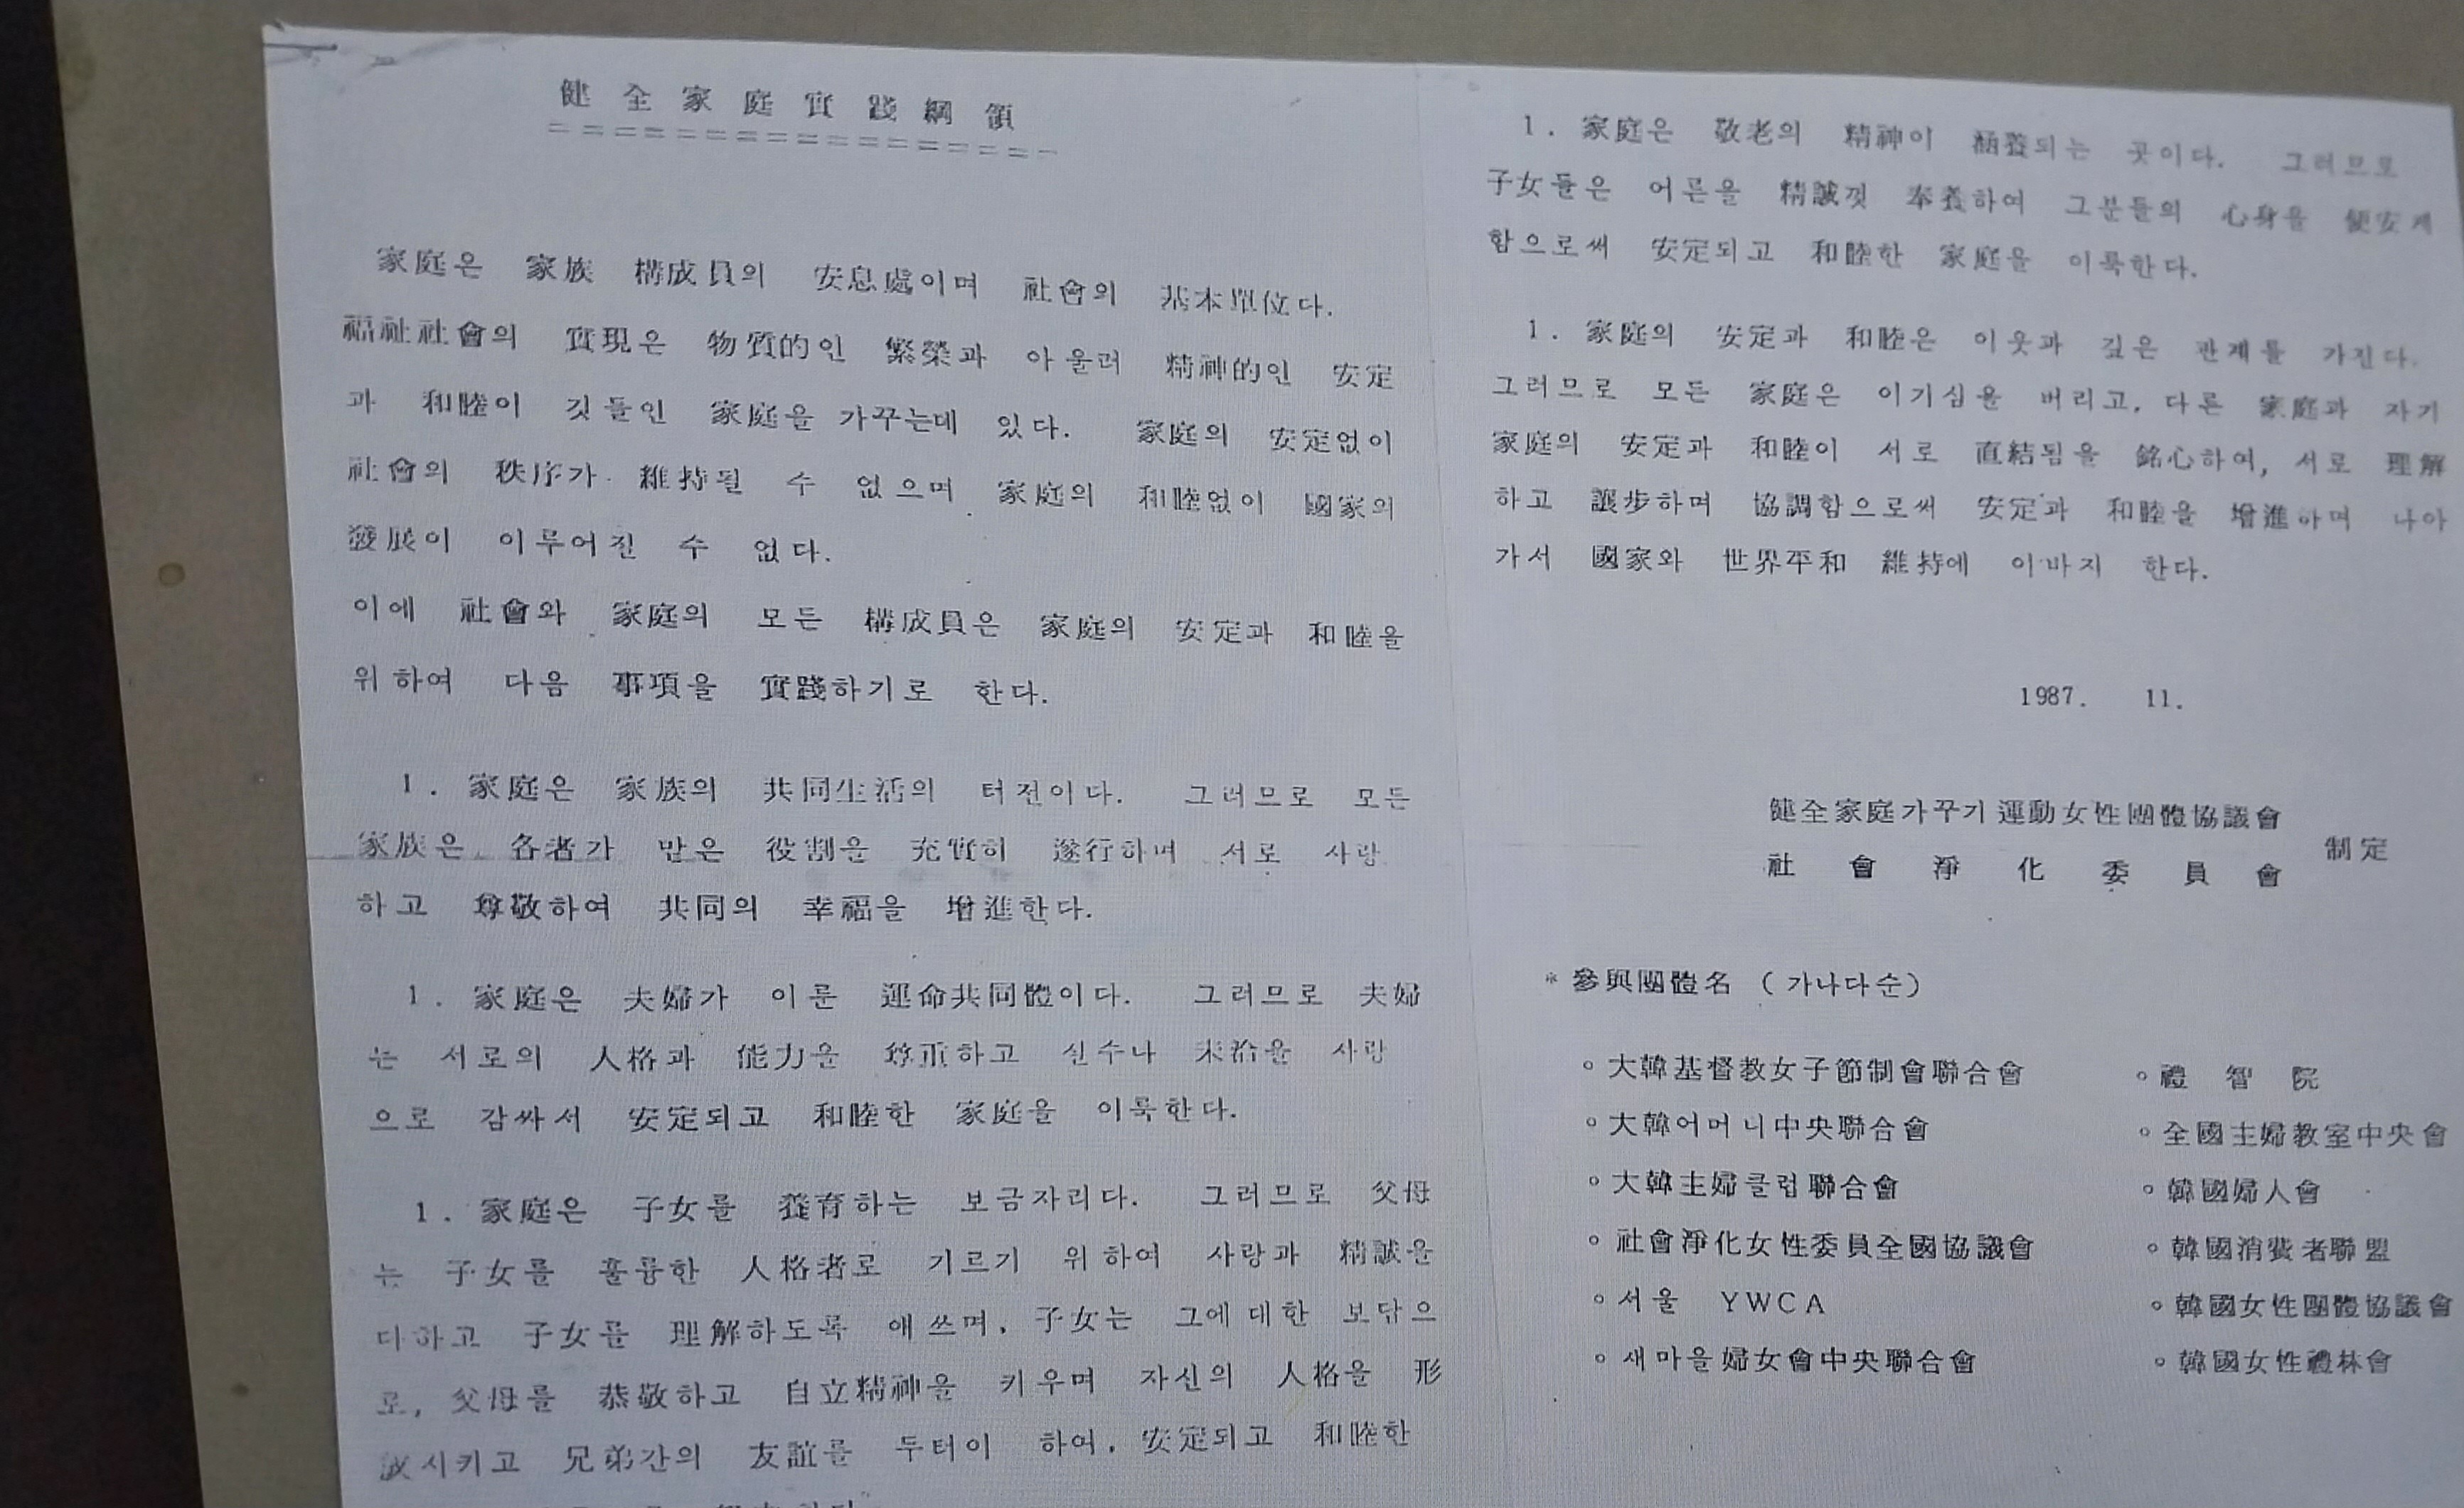 健全家庭實踐綱領
家庭은 家族 構成員의 安息處이며 社會의 基本單位다.
福祉社會의 實現은 物質的인 繁榮과 아울러 精神的인 安定
과 和睦이 깃들인 家庭을 가꾸는데 있다. 家庭의 安定없이
社會의 秩序가 維持될 수 없으며 家庭의 和睦없이 國家의
發展이 이루어질 수 없다.
이에 社會와 家庭의 모든 構成員은 家庭의 安定과 和睦을
위하여 다음 事項을 實踐하기로 한다.
1. 家庭은 家族의 共同生活의 터전이다. 그러므로 모든
家族은 各者가 맡은 役割을 充實히 遂行하며 서로 사랑
하고 尊敬하여 共同의 幸福을 增進한다.
1. 家庭은 夫婦가 이룬 運命共同體이다. 그러므로 夫婦
는 서로의 人格과 能力을 尊重하고 실수나 未洽을 사랑
으로 감싸서 安定되고 和睦한 家庭을 이룩한다.
1. 家庭은 子女를 養育하는 보금자리다. 그러므로 父母
는 子女를 훌륭한 人格者로 기르기 위하여 사랑과 精誠을
다하고 子女를 理解하도록 애쓰며, 子女는 그에 대한 보답으
로, 父母를 恭敬하고 自立精神을 키우며 자신의 人格을 形
成시키고 兄弟간의 友誼를 두터이 하여, 安定되고 和睦한
1. 家庭은 敬老의 精神이 涵養되는 곳이다. 그러므로
子女들은 어른을 精誠껏 奉養하여 그분들의 心身을 便安케
함으로써 安定되고 和睦한 家庭을 이룩한다.
1. 家庭의 安定과 和睦은 이웃과 깊은 관계를 가진다.
그러므로 모든 家庭은 이기심을 버리고, 다른 家庭과 자기
家庭의 安定과 和睦이 서로 直結됨을 銘心하여, 서로 理解
하고 讓步하며 協調함으로써 安定과 和睦을 增進하며 나아
가서 國家와 世界平和 維持에 이바지 한다.
1987. 11.
健全家庭가꾸기 運動女性團體協議會
社會淨化委員會
制定
* 參與團體名 (가나다순)
◦ 大韓基督敎女子節制會聯合會
◦ 大韓어머니中央聯合會
◦ 大韓主婦클럽聯合會
◦ 社會淨化女性委員全國協議會
◦ 서울 YWCA
◦ 새마을婦女會中央聯合會
◦ 禮智院
◦ 全國主婦敎室中央會
◦ 韓國婦人會
◦ 韓國消費者聯盟
◦ 韓國女性團體協議會
◦ 韓國女性禮林會